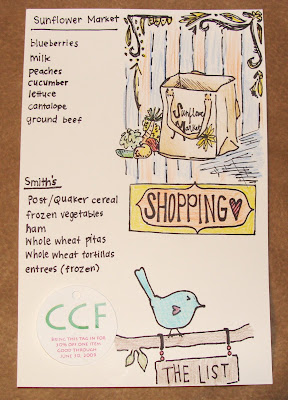 Sunflower Market
blueberries
milk
peaches
cucumber
lettuce
cantalope
ground beef
Sunflower
Market
SHOPPING
Smith's
Post/Quaker cereal
frozen vegetables
ham
Whole wheat pitas
Whole wheat tortillas
entrees (frozen)
CCF
BRING THIS TAG IN FOR
30% OFF ONE ITEM
GOOD THROUGH
JUNE 30, 2009
THE LIST